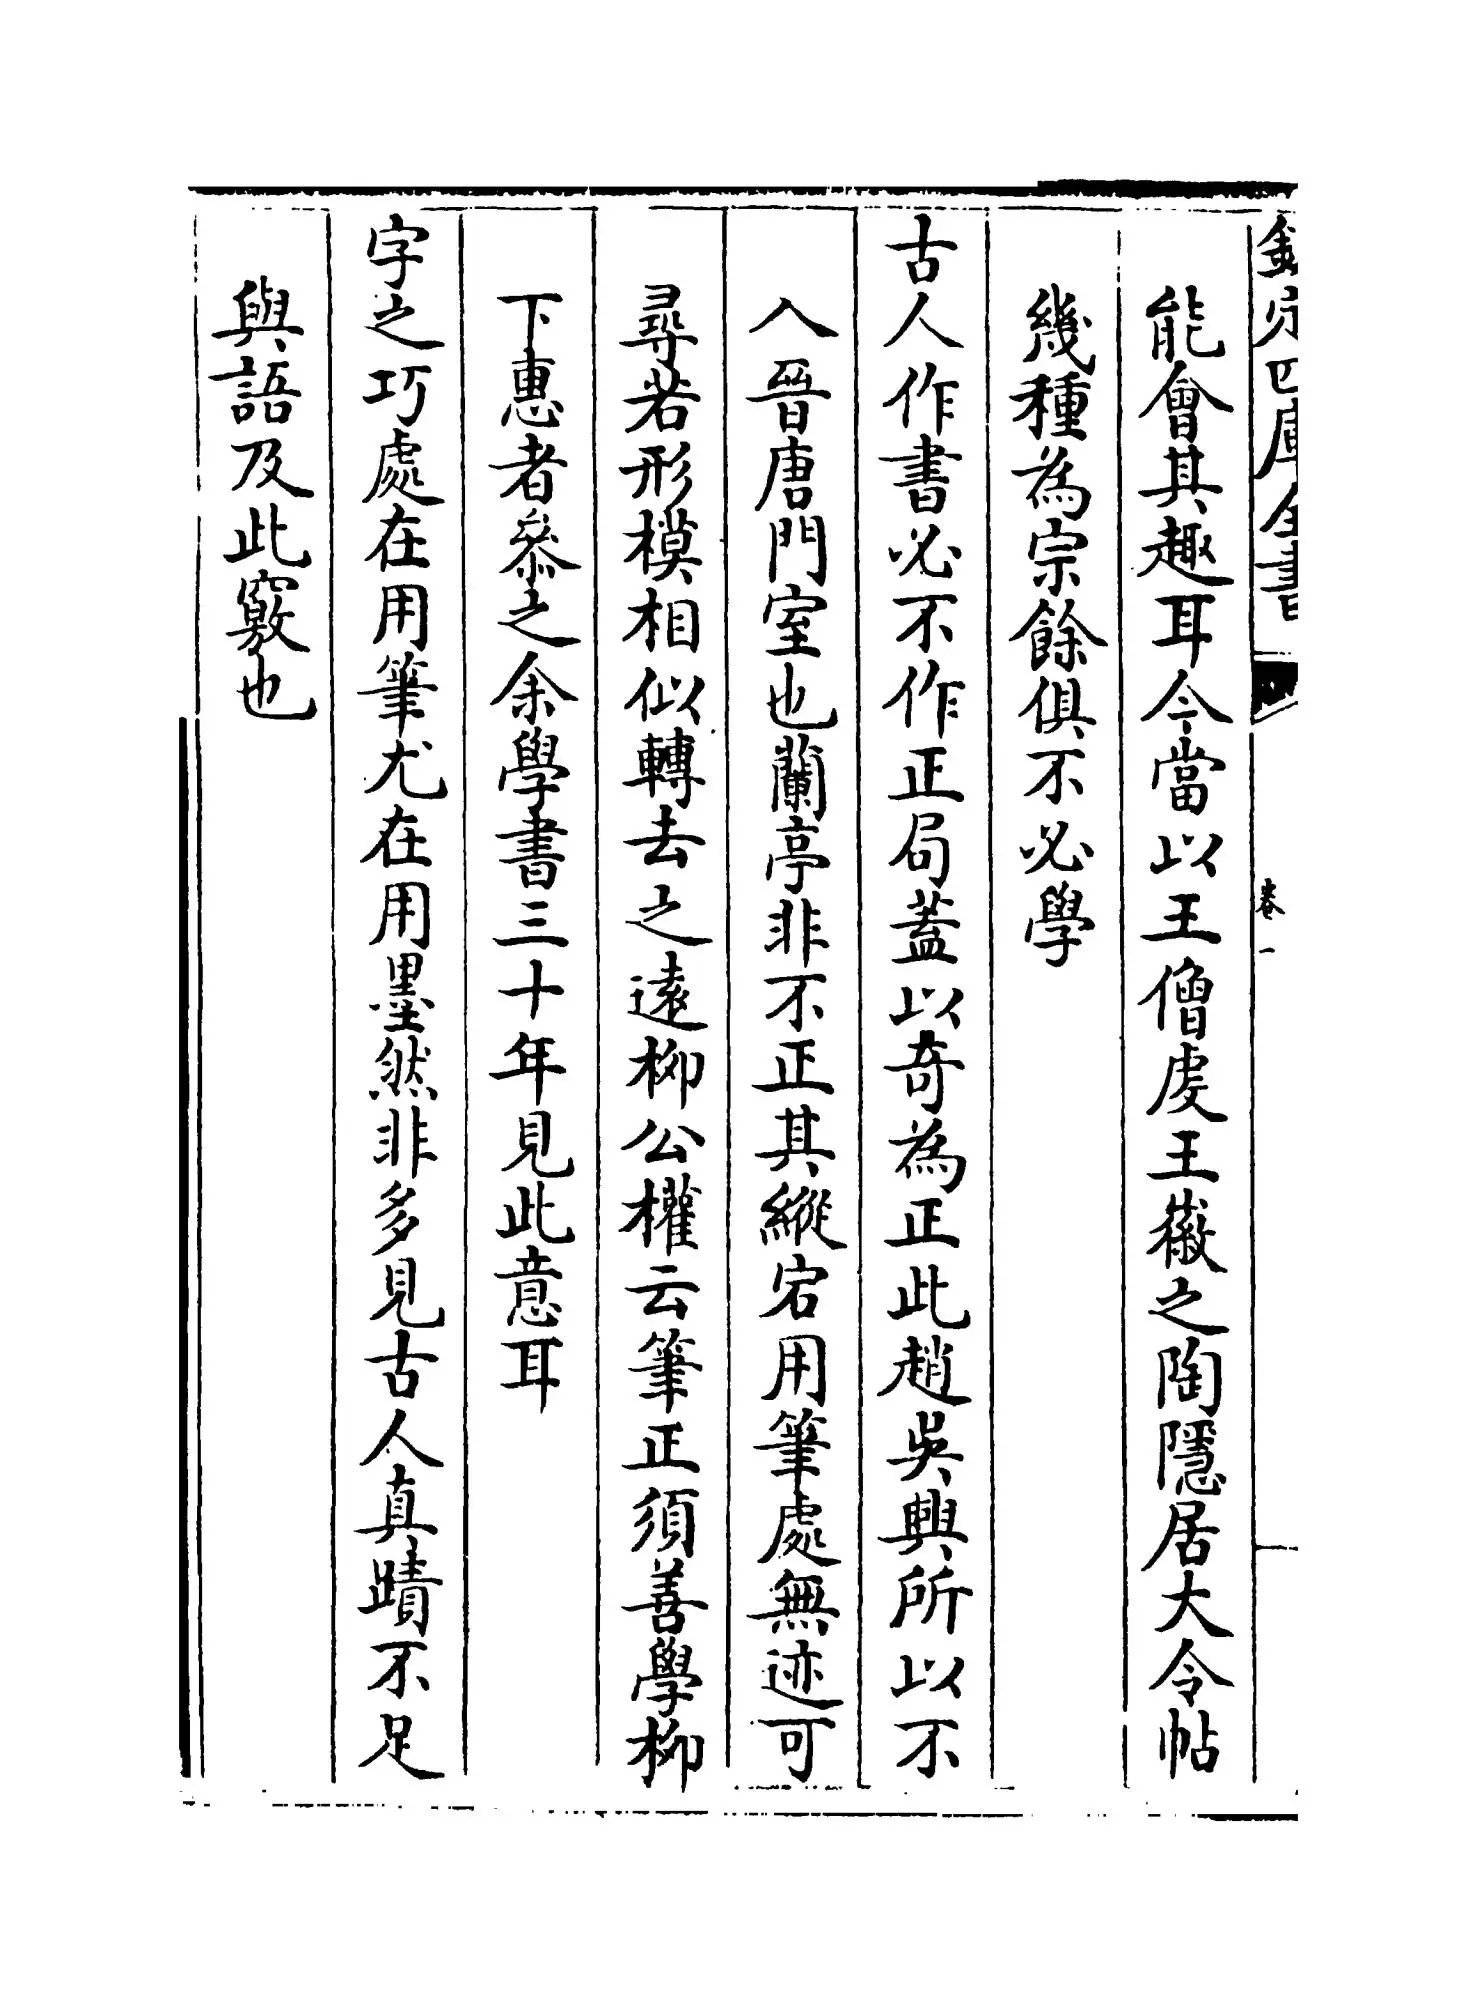 欽定四庫全書
卷一
能會其趣耳今當以王僧虔王徽之陶隱居大令帖
幾種為宗餘俱不必學
古人作書必不作正局蓋以奇為正此趙吳興所以不
入晉唐門室也蘭亭非不正其縱宕用筆處無迹可
尋若形模相似轉去之遠柳公權云筆正須善學柳
下惠者參之余學書三十年見此意耳
字之巧處在用筆尤在用墨然非多見古人真蹟不足
與語及此竅也